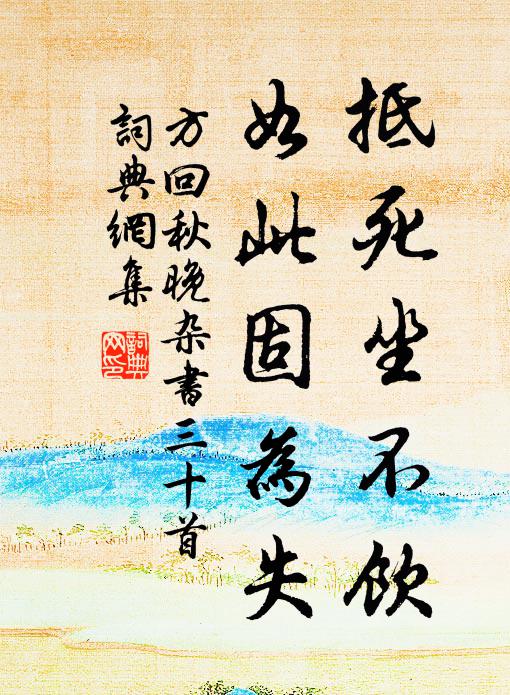 抵死坐不饮
如此固為失
方回秋晚杂書三十首
詞典網集
詞典网印